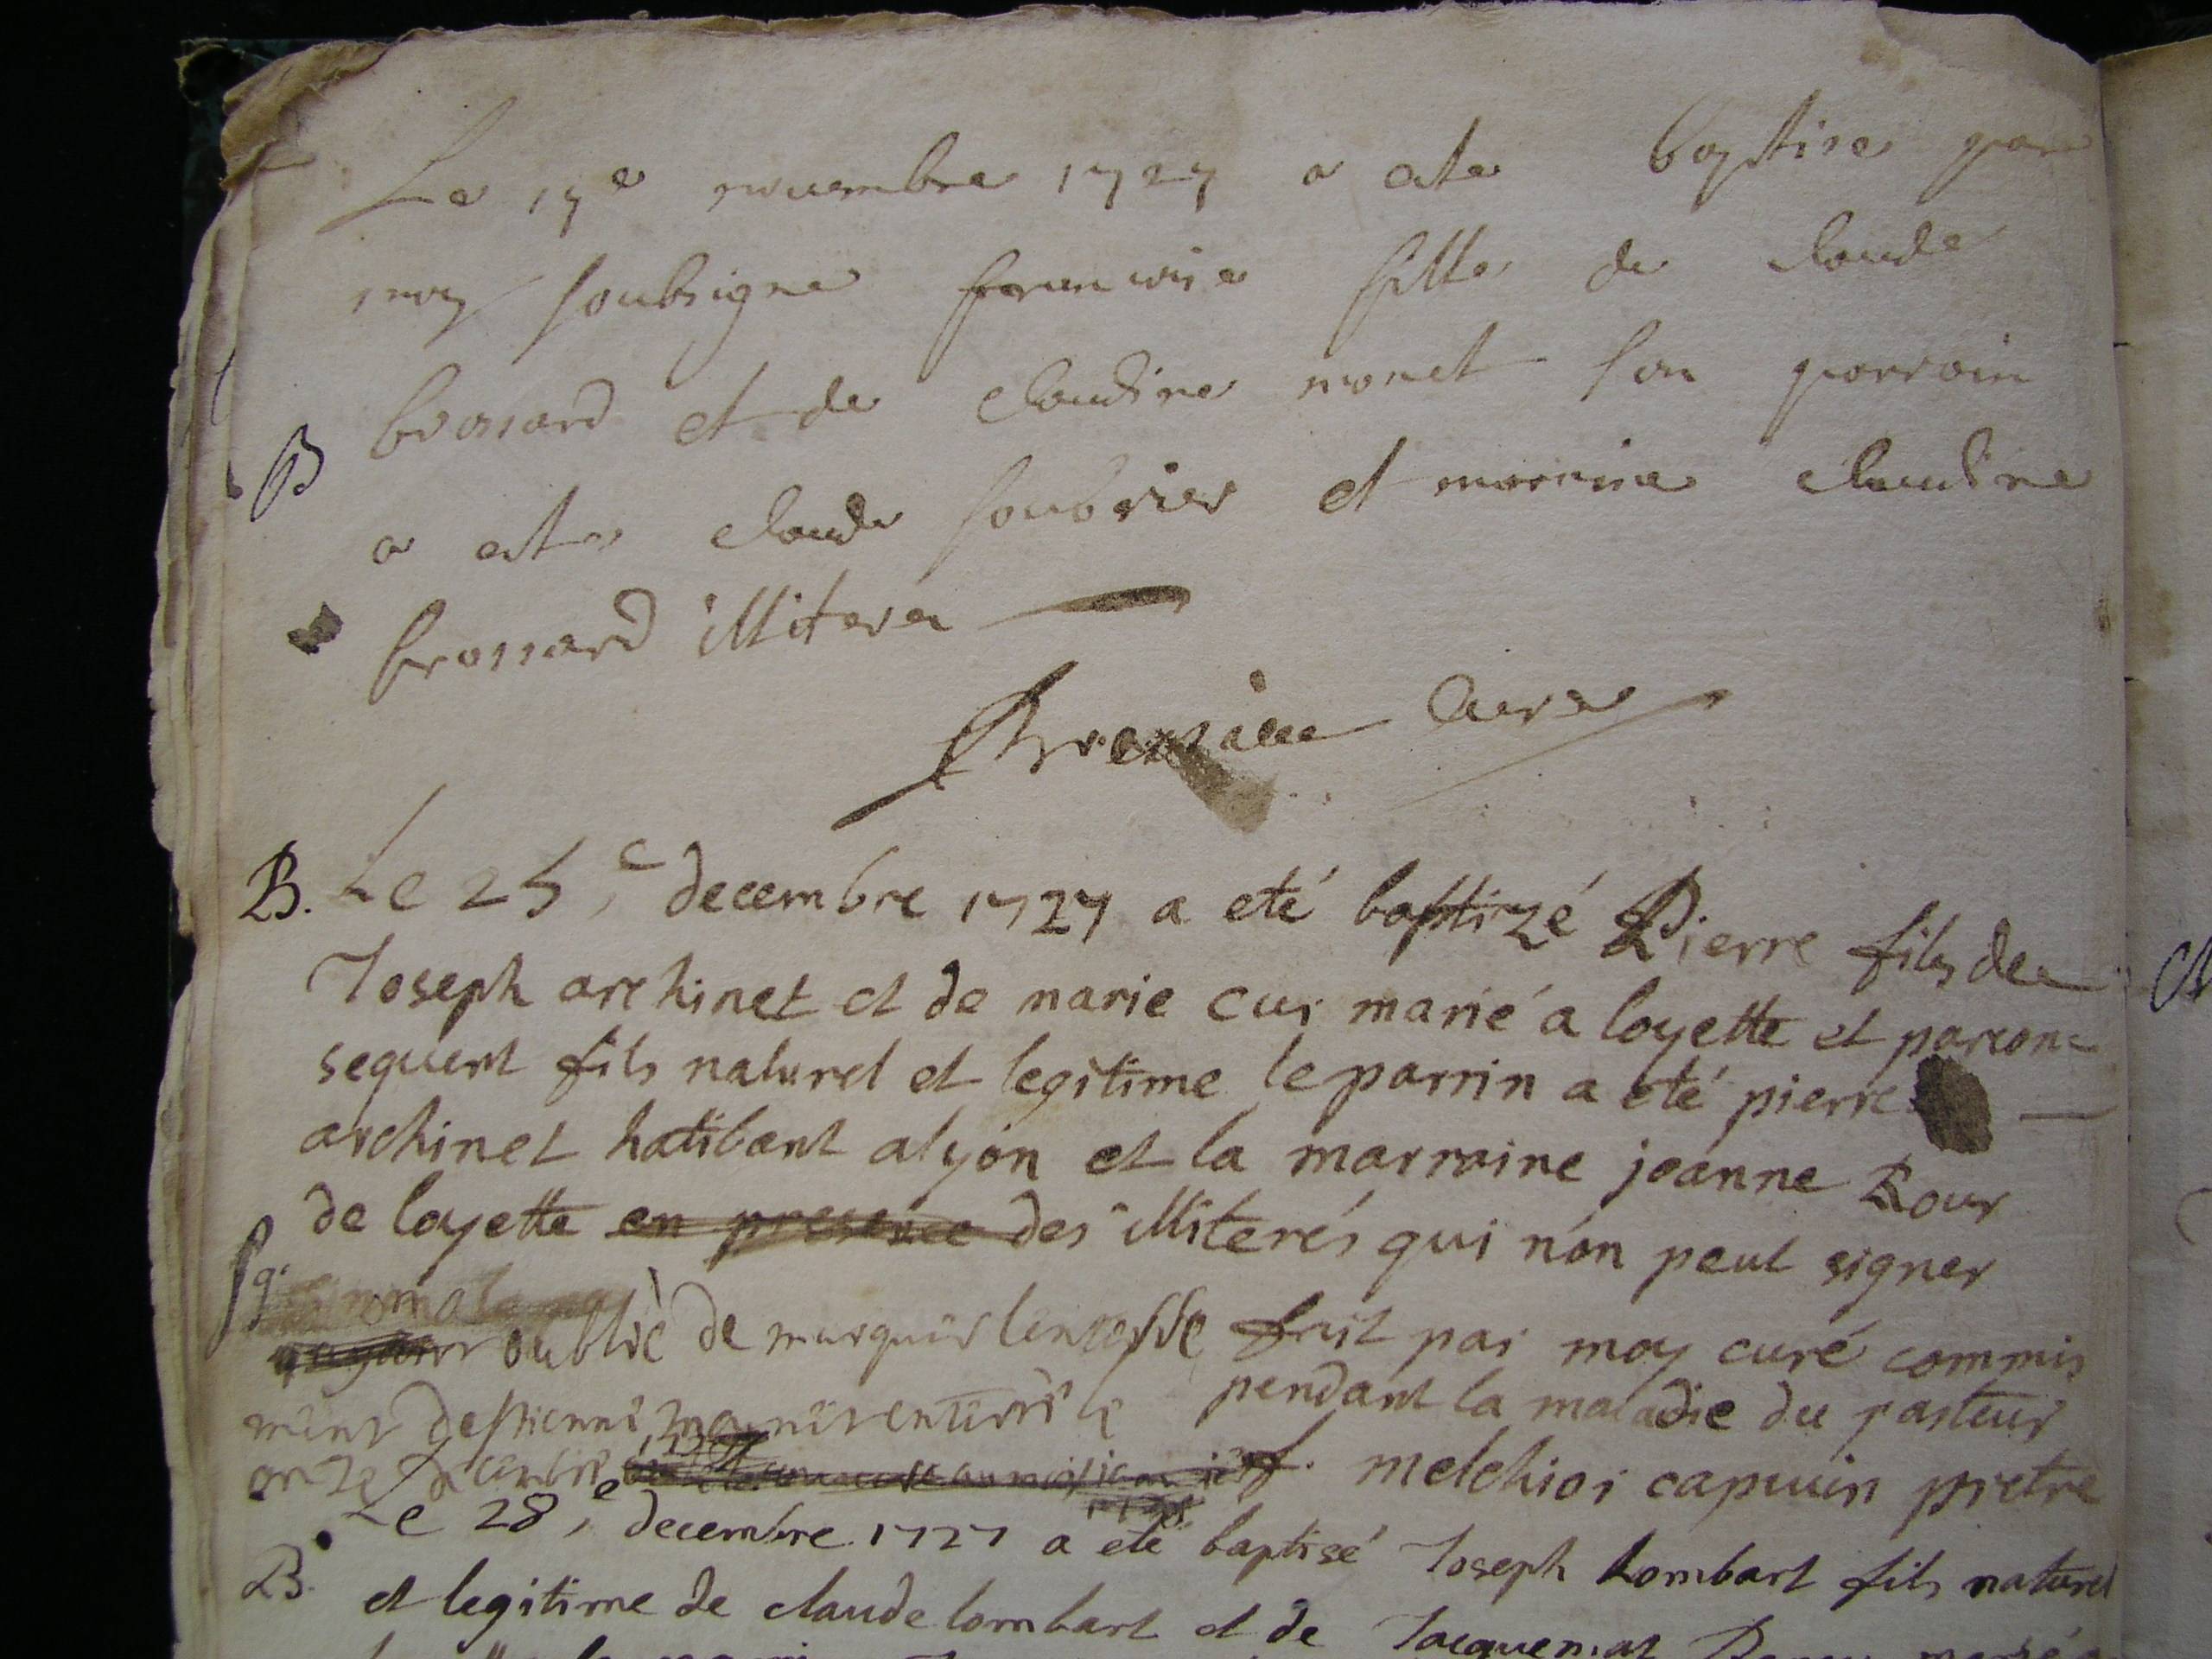 Le 17e nouembre 1727 a ete baptisee par
moy soubsigne francoise fille de claude
B brossard et de claudine monet son parrain
a ete claude soubrier et marraine claudine
brossard illiteres
curé
B. Le 25,e decembre 1727 a eté baptizé Pierre fils de
Joseph archinet et de marie cur marié a loyette et parcon=
sequent fils naturel et legitime le parrin a eté pierre
archinet hatibant a lyon et la marraine jeanne Rour
de loyette en presence des illiterés qui nón peut signer
fait par moy curé commis
oublié de marquer
pendant la maladie du pasteur
f. melchior capucin pretre
Le 28,e decembre 1727 a eté baptisé Joseph Lombart fils naturel
B. et legitime de claude lombart et de Jacquemat